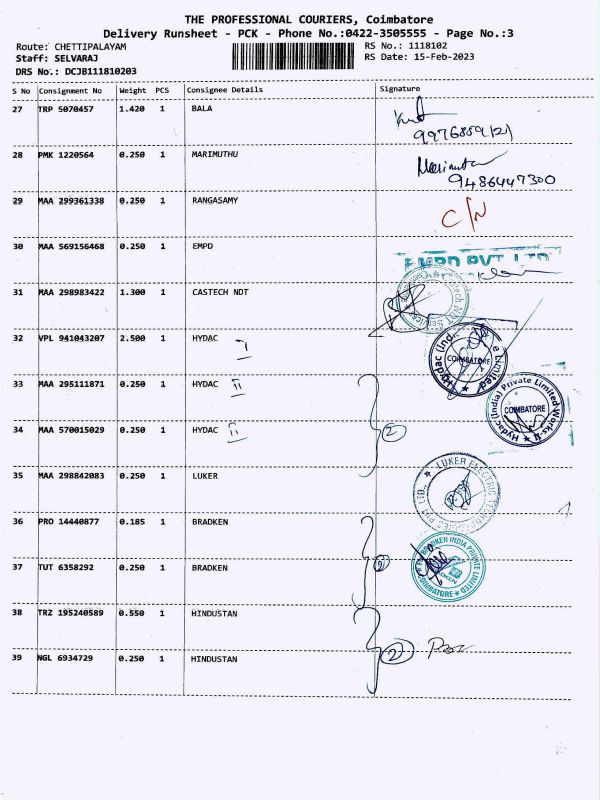 THE PROFESSIONAL COURIERS, Coimbatore
Delivery Runsheet - PCK - Phone No.:0422-3505555 - Page No.:3
Route: CHETTIPALAYAM RS No.: 1118102
Staff: SELVARAJ RS Date: 15-Feb-2023
DRS No.: DCJB111810203
S No Consignment No Weight PCS Consignee Details Signature
27 TRP 5070457 1.420 1 BALA
28 PMK 1220564 0.250 1 MARIMUTHU
9486447300
29 MAA 299361338 0.250 1 RANGASAMY
C/N
30 MAA 569156468 0.250 1 EMPD
EMPD PVT LTD
31 MAA 298983422 1.300 1 CASTECH NDT
32 VPL 941043207 2.500 1 HYDAC I
COIMBATORE
33 MAA 295111871 0.250 1 HYDAC II
Hydac (India) Private Limited-Works-II
COIMBATORE
34 MAA 570015029 0.250 1 HYDAC II
2
35 MAA 298842083 0.250 1 LUKER
36 PRO 14440877 0.185 1 BRADKEN
BRADKEN INDIA PRIVATE LIMITED
COIMBATORE
37 TUT 6358292 0.250 1 BRADKEN
2
38 TRZ 195240589 0.550 1 HINDUSTAN
2
39 NGL 6934729 0.250 1 HINDUSTAN